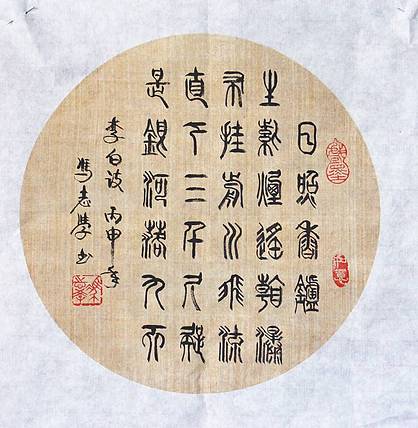 日照香鑪
生紫煙遙看瀑
布挂前川飛流
直下三千尺疑
是銀河落九天
李白詩 丙申年
志學書